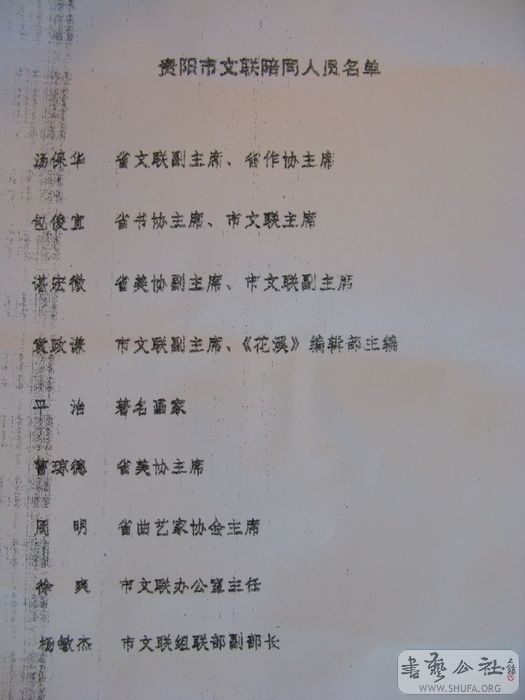 贵阳市文联陪同人员名单
汤保华 省文联副主席、省作协主席
包俊宜 省书协主席、市文联主席
谌宏微 省美协副主席、市文联副主席
袁政谦 市文联副主席、《花溪》编辑部主编
平治 著名画家
曹琼德 省美协主席
周明 省曲艺家协会主席
徐爽 市文联办公室主任
杨敏杰 市文联组联部副部长
書藝公社
WWW.SHUFA.ORG